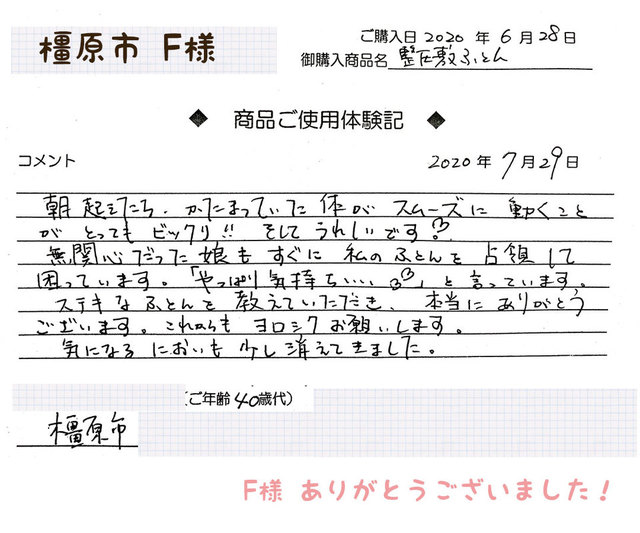 橿原市 F様
ご購入日 2020 年 6 月 28 日
御購入商品名 整圧敷ふとん
◆ 商品ご使用体験記 ◆
コメント
2020 年 7 月 29 日
朝 起きたら、かたまっていた 体が スムーズに 動くこと
が とっても ビックリ!! そして うれしいです
無関心だった 娘も すぐに 私の ふとんを 占領して
困っています。「やっぱり 気持ちいい」と 言っています。
ステキな ふとんを 教えていただき、本当に ありがとう
ございます。これからも ヨロシク お願いします。
気になる においも 少し 消えてきました。
(ご年齢 40歳代)
橿原市
F様 ありがとうございました！